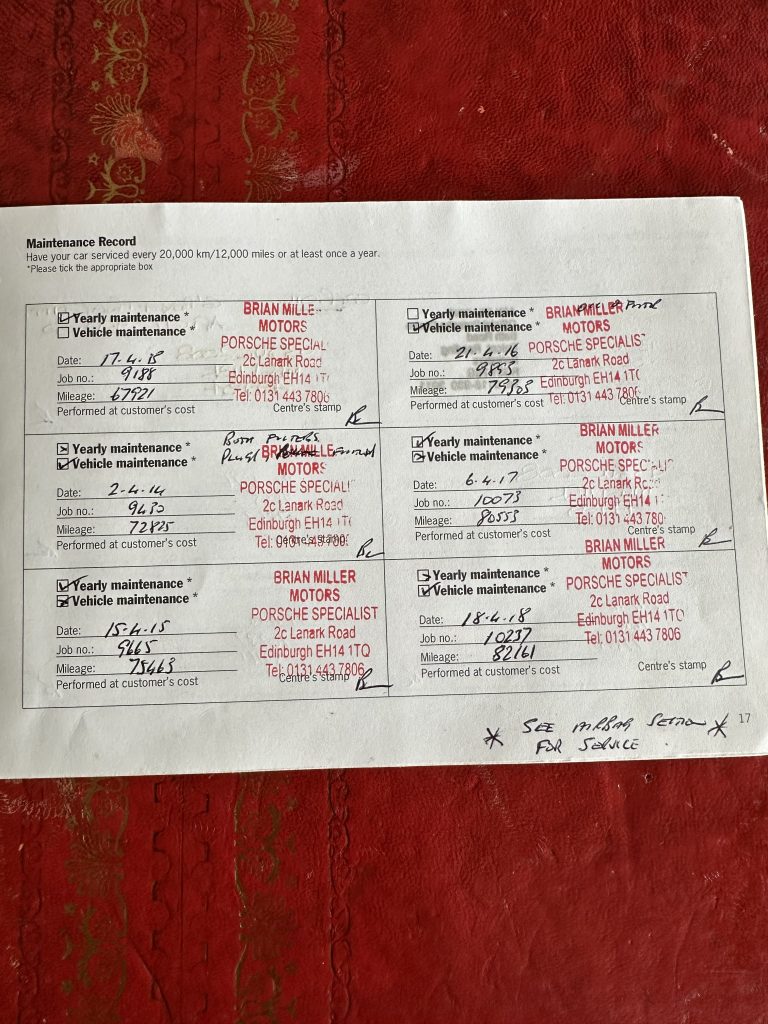 Maintenance Record
Have your car serviced every 20,000 km/12,000 miles or at least once a year.
*Please tick the appropriate box
Yearly maintenance *
Vehicle maintenance *
Date: 17.4.13
Job no.: 9188
Mileage: 67921
Performed at customer's cost
BRIAN MILLE
MOTORS
PORSCHE SPECIAL
2c Lanark Road
Edinburgh EH14 1T
Tel: 0131 443 780
Centre's stamp
BOTH FILTERS
FITTED
Yearly maintenance *
Vehicle maintenance *
Date: 2-4-14
Job no.: 9430
Mileage: 72825
Performed at customer's cost
BRIAN MILLE
MOTORS
PORSCHE SPECIALI
2c Lanark Road
Edinburgh EH14 1T
Tel: 0131 443 780
Centre's stamp
Yearly maintenance *
Vehicle maintenance *
Date: 15-4-15
Job no.: 9665
Mileage: 75463
Performed at customer's cost
BRIAN MILLER
MOTORS
PORSCHE SPECIALIST
2c Lanark Road
Edinburgh EH14 1TQ
Tel: 0131 443 7806
Centre's stamp
Yearly maintenance *
Vehicle maintenance *
Date: 21.4.16
Job no.: 9853
Mileage: 79303
Performed at customer's cost
BRIAN MILLER
MOTORS
PORSCHE SPECIALIST
2c Lanark Road
Edinburgh EH14 1TQ
Tel: 0131 443 7806
Centre's stamp
Yearly maintenance *
Vehicle maintenance *
Date: 6.4.17
Job no.: 10073
Mileage: 80553
Performed at customer's cost
BRIAN MILLER
MOTORS
PORSCHE SPECIALI
2c Lanark
Edinburgh EH14 1
Tel: 0131 443 780
Centre's stamp
Yearly maintenance *
Vehicle maintenance *
Date: 18.4.18
Job no.: 10237
Mileage: 82161
Performed at customer's cost
BRIAN MILLER
MOTORS
PORSCHE SPECIALIST
2c Lanark Road
Edinburgh EH14 1TQ
Tel: 0131 443 7806
Centre's stamp
* SEE AIRBAG SECTION *
FOR SERVICE.
17